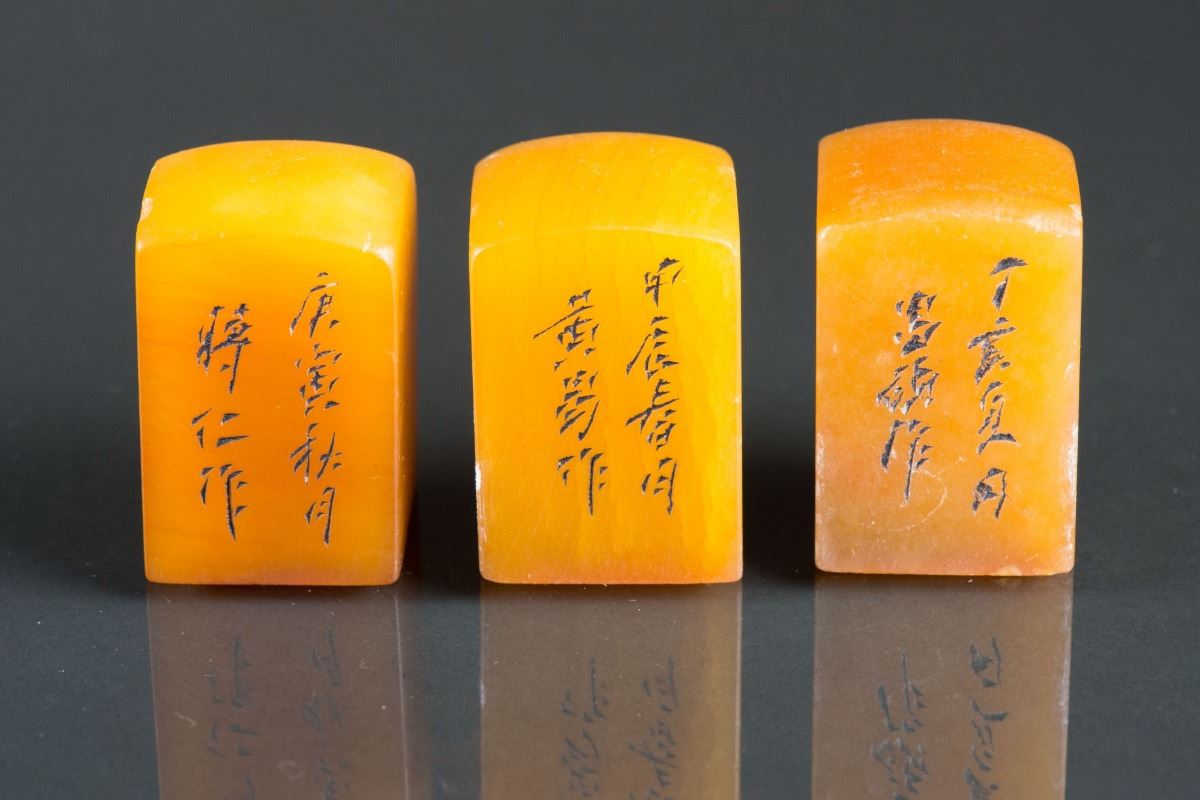 庚寅秋月
蒋仁作
甲辰春月
黄易作
丁亥夏月
作